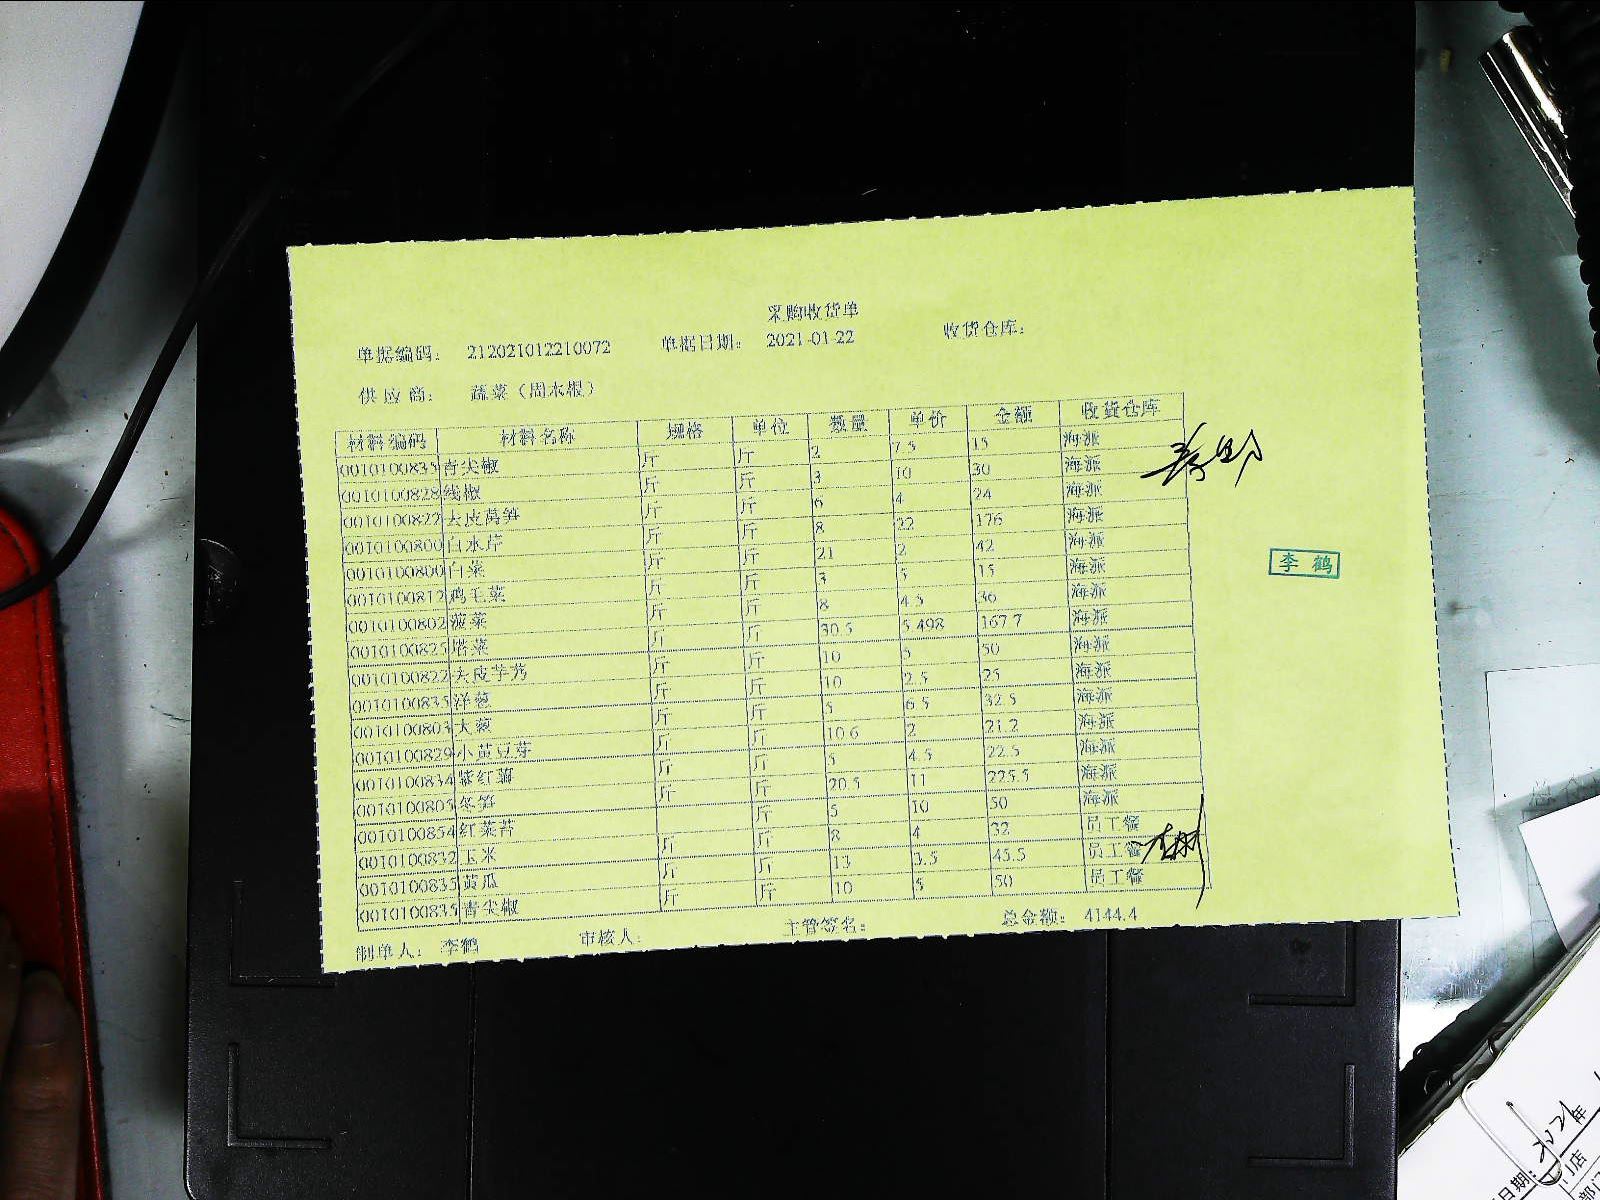 采购收货单
单据编码： 212021012210072 单据日期： 2021-01-22 收货仓库：
供 应 商： 蔬菜（周木根）
材料编码 材料名称 规格 单位 数量 单价 金额 收货仓库
0010100835 青尖椒 斤 斤 2 7.5 15 海派
0010100828 线椒 斤 斤 3 10 30 海派
0010100822 去皮莴笋 斤 斤 6 4 24 海派
0010100800 白水芹 斤 斤 8 22 176 海派
0010100800 白菜 斤 斤 21 2 42 海派
0010100812 鸡毛菜 斤 斤 3 5 15 海派
0010100802 菠菜 斤 斤 8 4.5 36 海派
0010100825 塔菜 斤 斤 30.5 5.498 167.7 海派
0010100822 去皮芋艿 斤 斤 10 5 50 海派
0010100835 洋葱 斤 斤 10 2.5 25 海派
0010100803 大葱 斤 斤 5 6.5 32.5 海派
0010100829 小黄豆芽 斤 斤 10.6 2 21.2 海派
0010100834 紫红薯 斤 斤 5 4.5 22.5 海派
0010100805 冬笋 斤 斤 20.5 11 225.5 海派
0010100854 红菜苔 斤 5 10 50 海派
0010100832 玉米 斤 斤 8 4 32 员工餐
0010100835 黄瓜 斤 斤 13 3.5 45.5 员工餐
0010100835 青尖椒 斤 斤 10 5 50 员工餐
制单人： 李鹤 审核人： 主管签名： 总金额： 4144.4
李鹤
2021年
日期：
门店